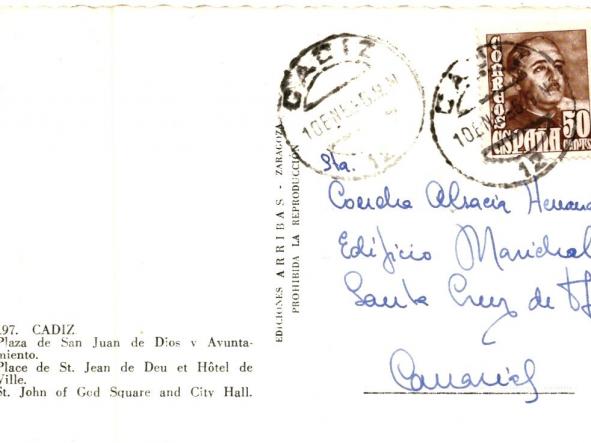 CADIZ
10 EN
12
CADIZ
10 EN
12
CORREOS
ESPAÑA
50
EDICIONES ARRIBAS - ZARAGOZA
PROHIBIDA LA REPRODUCCIÓN
Sta.
Concha Alsacia
Edificio
Santa Cruz de Tf
Canarias
.97. CADIZ
Plaza de San Juan de Dios y Ayunta-
miento.
Place de St. Jean de Deu et Hôtel de
Ville.
St. John of God Square and City Hall.